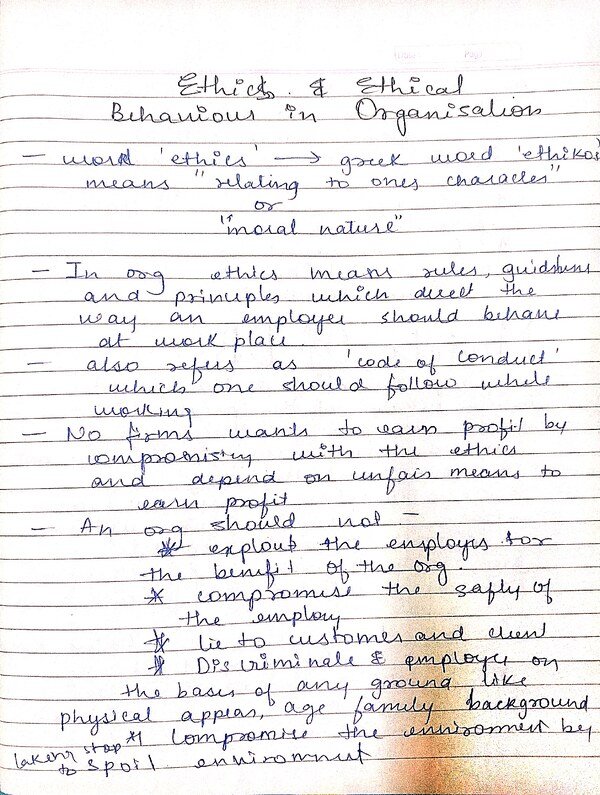 Ethics & Ethical
Behaviour in Organisation
— word 'ethics' → greek word 'ethikos
means "relating to ones character"
or
"moral nature"
— In org ethics means rules, guidelines
and principles which direct the
way an employee should behave
at work place.
— also refers as 'code of conduct'
which one should follow while
working
— No firms wants to earn profit by
compromising with the ethics
and depend on unfair means to
earn profit
— An org should not —
* exploit the employes for
the benifit of the org.
* compromise the safly of
the employ
* lie to customes and client
* Discriminate & employee on
the basis of any ground like
physical appeas, age family background
* compromise the environment by
stop to spoil environment